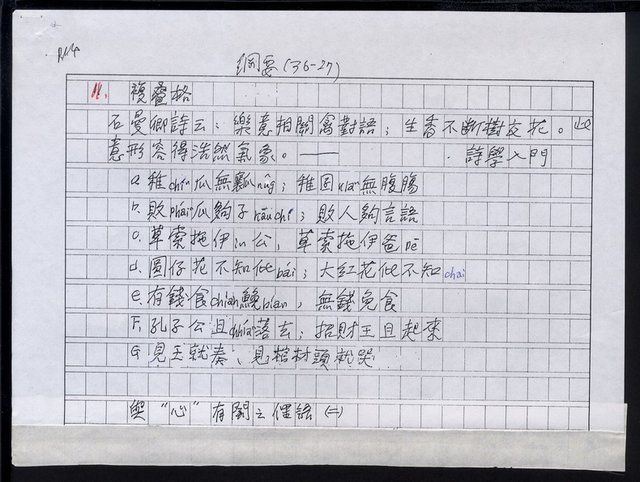 綱要(36-27)
11. 複疊格
石曼卿詩云：樂意相關禽對語；生香不斷樹交花。
意形容得浩然氣象。—— ．詩學入門
a. 稚chiⁿ瓜無瓤nn̂g；稚囝kiáⁿ無腹腸
b. 敗pháiⁿ瓜夠子kāu chí；敗人夠言語
c. 草索拖伊in公，草索拖伊爸pē
d. 圓仔花不知伊bái；大紅花伊不知chái
e. 有錢食chiah鮸bián，無錢免食
F. 孔子公且chhiáⁿ落去；招財王且起來
G. 見王就奏、見棺材頭就哭
與“心”有關之俚語(二)